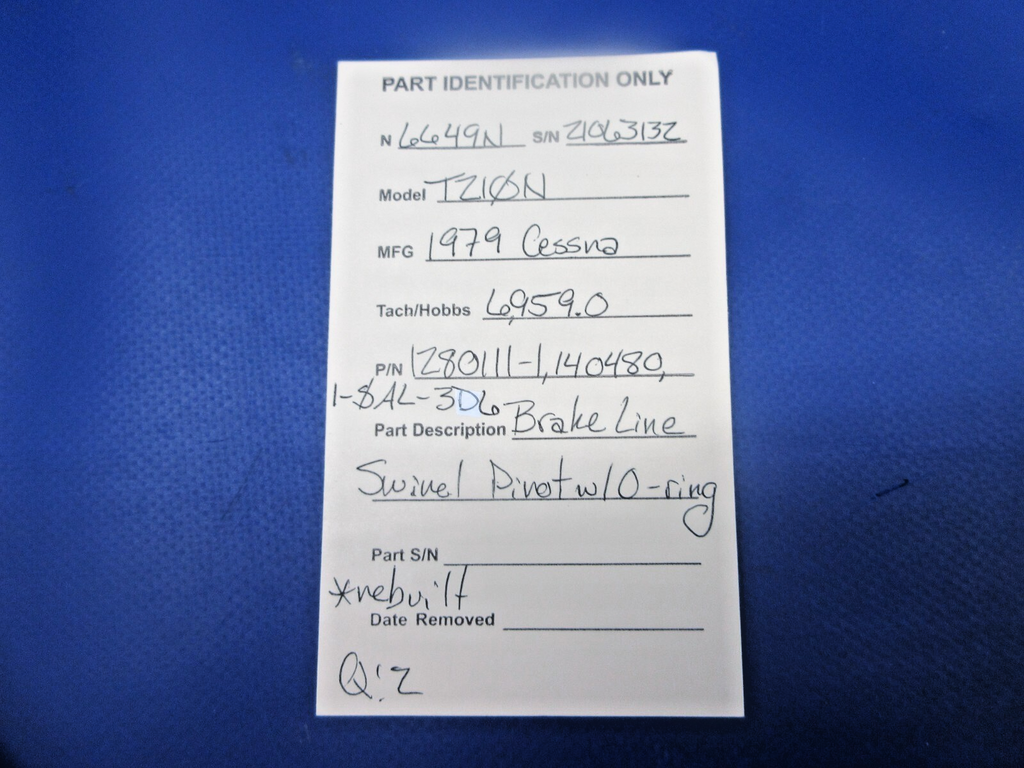 PART IDENTIFICATION ONLY
N 6649N S/N 21063132
Model T210N
MFG 1979 Cessna
Tach/Hobbs 6,959.0
P/N 1280111-1, 140480,
1-SAL-3D6
Part Description Brake Line
Swivel Pivot w/ O-ring
Part S/N
*rebuilt
Date Removed
Q: 2